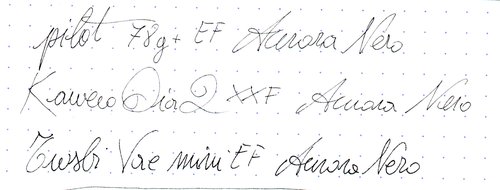 pilot 78g+ EF Aurora Nero
Kaweco Dia2 XXF Aurora Nero
Twsbi Vac mini EF Aurora Nero